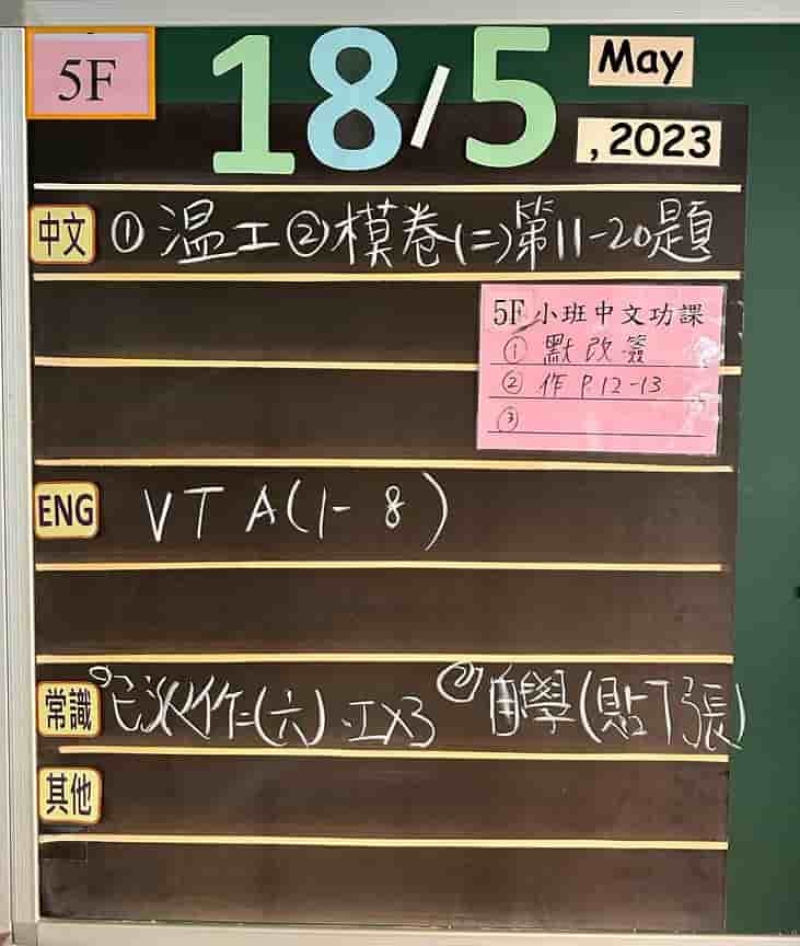 5F
18/5
May
, 2023
中文 ① 温工 ② 模卷(二)第11-20題
5F 小班中文功課
① 默改簽
② 作 P.12-13
③
ENG VT A(1-8)
常識 作(六)、工x3 ② 自學(貼下張)
其他